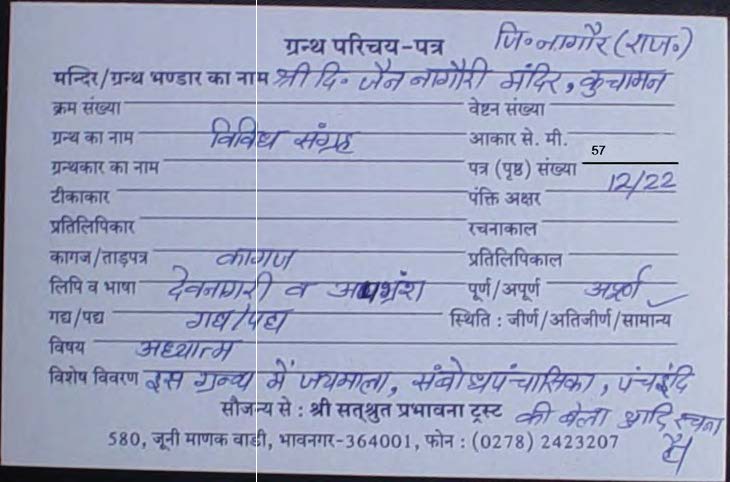 ग्रन्थ परिचय-पत्र जि॰ नागौर (राज॰)
मन्दिर/ग्रन्थ भण्डार का नाम श्री दि॰ जैन नागौरी मंदिर, कुचामन
क्रम संख्या वेष्टन संख्या
ग्रन्थ का नाम विविध संग्रह आकार से. मी.
ग्रन्थकार का नाम पत्र (पृष्ठ) संख्या 57
टीकाकार पंक्ति अक्षर 12/22
प्रतिलिपिकार रचनाकाल
कागज/ताड़पत्र कागज प्रतिलिपिकाल
लिपि व भाषा देवनागरी व अपभ्रंश पूर्ण/अपूर्ण अपूर्ण
गद्य/पद्य गद्य/पद्य स्थिति : जीर्ण/अतिजीर्ण/सामान्य ✓
विषय अध्यात्म
विशेष विवरण इस ग्रन्थ में जयमाला, संबोधपंचासिका, पंचइंदि
सौजन्य से : श्री सत्श्रुत प्रभावना ट्रस्ट की बेला आदि रचना
580, जूनी माणक वाडी, भावनगर-364001, फोन : (0278) 2423207 है।